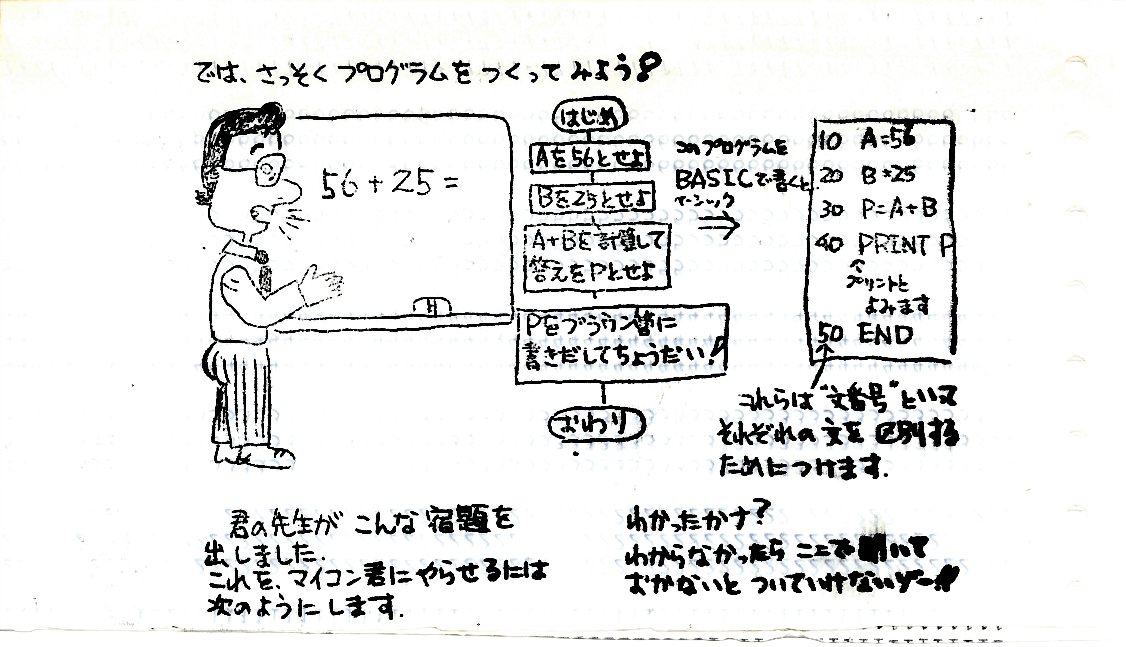 では、さっそくプログラムをつくってみよう!
56+25=
はじめ
Aを56とせよ
Bを25とせよ
A+Bを計算して
答えをPとせよ
Pをブラウン管に
書きだしてちょうだい!
おわり
このプログラムを
BASICで書くと
ベーシック
⇒
10 A=56
20 B=25
30 P=A+B
40 PRINT P
プリントと
よみます
50 END
これらは"文番号"といって
それぞれの文を区別する
ためにつけます.
君の先生がこんな宿題を
出しました.
これを、マイコン君にやらせるには
次のようにします.
わかったかナ?
わからなかったらここで聞いて
おかないとついていけないゾー!!